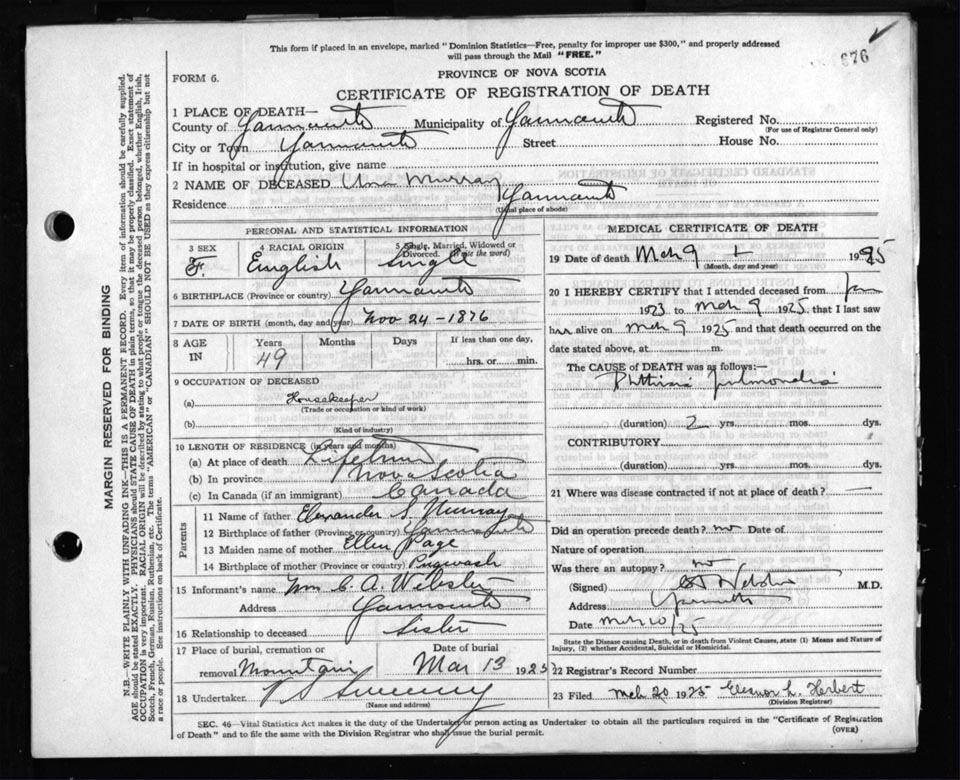 This form if placed in an envelope, marked "Dominion Statistics—Free, penalty for improper use $300," and properly addressed
will pass through the Mail "FREE."
676
FORM 6.
PROVINCE OF NOVA SCOTIA
CERTIFICATE OF REGISTRATION OF DEATH
1 PLACE OF DEATH—
County of Yarmouth Municipality of Yarmouth Registered No.
(For use of Registrar General only)
City or Town Yarmouth Street House No.
If in hospital or institution, give name
2 NAME OF DECEASED Una Murray
Residence Yarmouth
(Usual place of abode)
PERSONAL AND STATISTICAL INFORMATION
3 SEX 4 RACIAL ORIGIN 5 Single, Married, Widowed or Divorced. (Write the word)
F. English Single
6 BIRTHPLACE (Province or country) Yarmouth
7 DATE OF BIRTH (month, day and year) Nov 24-1876
8 AGE IN Years Months Days If less than one day,
49 hrs. or min.
9 OCCUPATION OF DECEASED
(a) Housekeeper
(Trade or occupation or kind of work)
(b)
(Kind of industry)
10 LENGTH OF RESIDENCE (in years and months)
(a) At place of death Lifetime
(b) In province Nova Scotia
(c) In Canada (if an immigrant) Canada
Parents
11 Name of father Alexander S Murray
12 Birthplace of father (Province or country) Yarmouth
13 Maiden name of mother Ellen Page
14 Birthplace of mother (Province or country) Pugwash
15 Informant's name Mrs C. A. Webster
Address Yarmouth
16 Relationship to deceased Sister
17 Place of burial, cremation or removal Mountain Date of burial Mar 13 1925
18 Undertaker V S Sweeny
(Name and address)
MEDICAL CERTIFICATE OF DEATH
19 Date of death Mch 9 1925
(Month, day and year)
20 I HEREBY CERTIFY that I attended deceased from Jan
1923 to Mch 9 1925. that I last saw
her alive on Mch 9 1925 and that death occurred on the
date stated above, at m.
The CAUSE of DEATH was as follows:—
Phthisis Pulmonalis
(duration) 2 yrs. mos. dys.
CONTRIBUTORY
(duration) yrs. mos. dys.
21 Where was disease contracted if not at place of death?
Did an operation precede death? no Date of
Nature of operation
Was there an autopsy? no
(Signed) Webster M.D.
Address Yarmouth
Date Mch 10/25
State the Disease causing Death, or in death from Violent Causes, state (1) Means and Nature of
Injury, (2) whether Accidental, Suicidal or Homicidal.
22 Registrar's Record Number
23 Filed Mch 20 1925 Eleanor L. Herbert
(Division Registrar)
SEC. 46—Vital Statistics Act makes it the duty of the Undertaker or person acting as Undertaker to obtain all the particulars required in the "Certificate of Registration
of Death" and to file the same with the Division Registrar who shall issue the burial permit. (OVER)
MARGIN RESERVED FOR BINDING
N.B.—WRITE PLAINLY WITH UNFADING INK—THIS IS A PERMANENT RECORD. Every item of information should be carefully supplied.
AGE should be stated EXACTLY. PHYSICIANS should STATE CAUSE OF DEATH in plain terms, so that it may be properly classified. Exact statement of
OCCUPATION is very important. RACIAL ORIGIN will be described by stating to what people or tongue the deceased person belonged, whether English, Irish,
Scotch, French, German, Russian, Ruthenian, etc. The terms "AMERICAN" or "CANADIAN" SHOULD NOT BE USED as they express citizenship but not
a race or people. See instructions on back of Certificate.